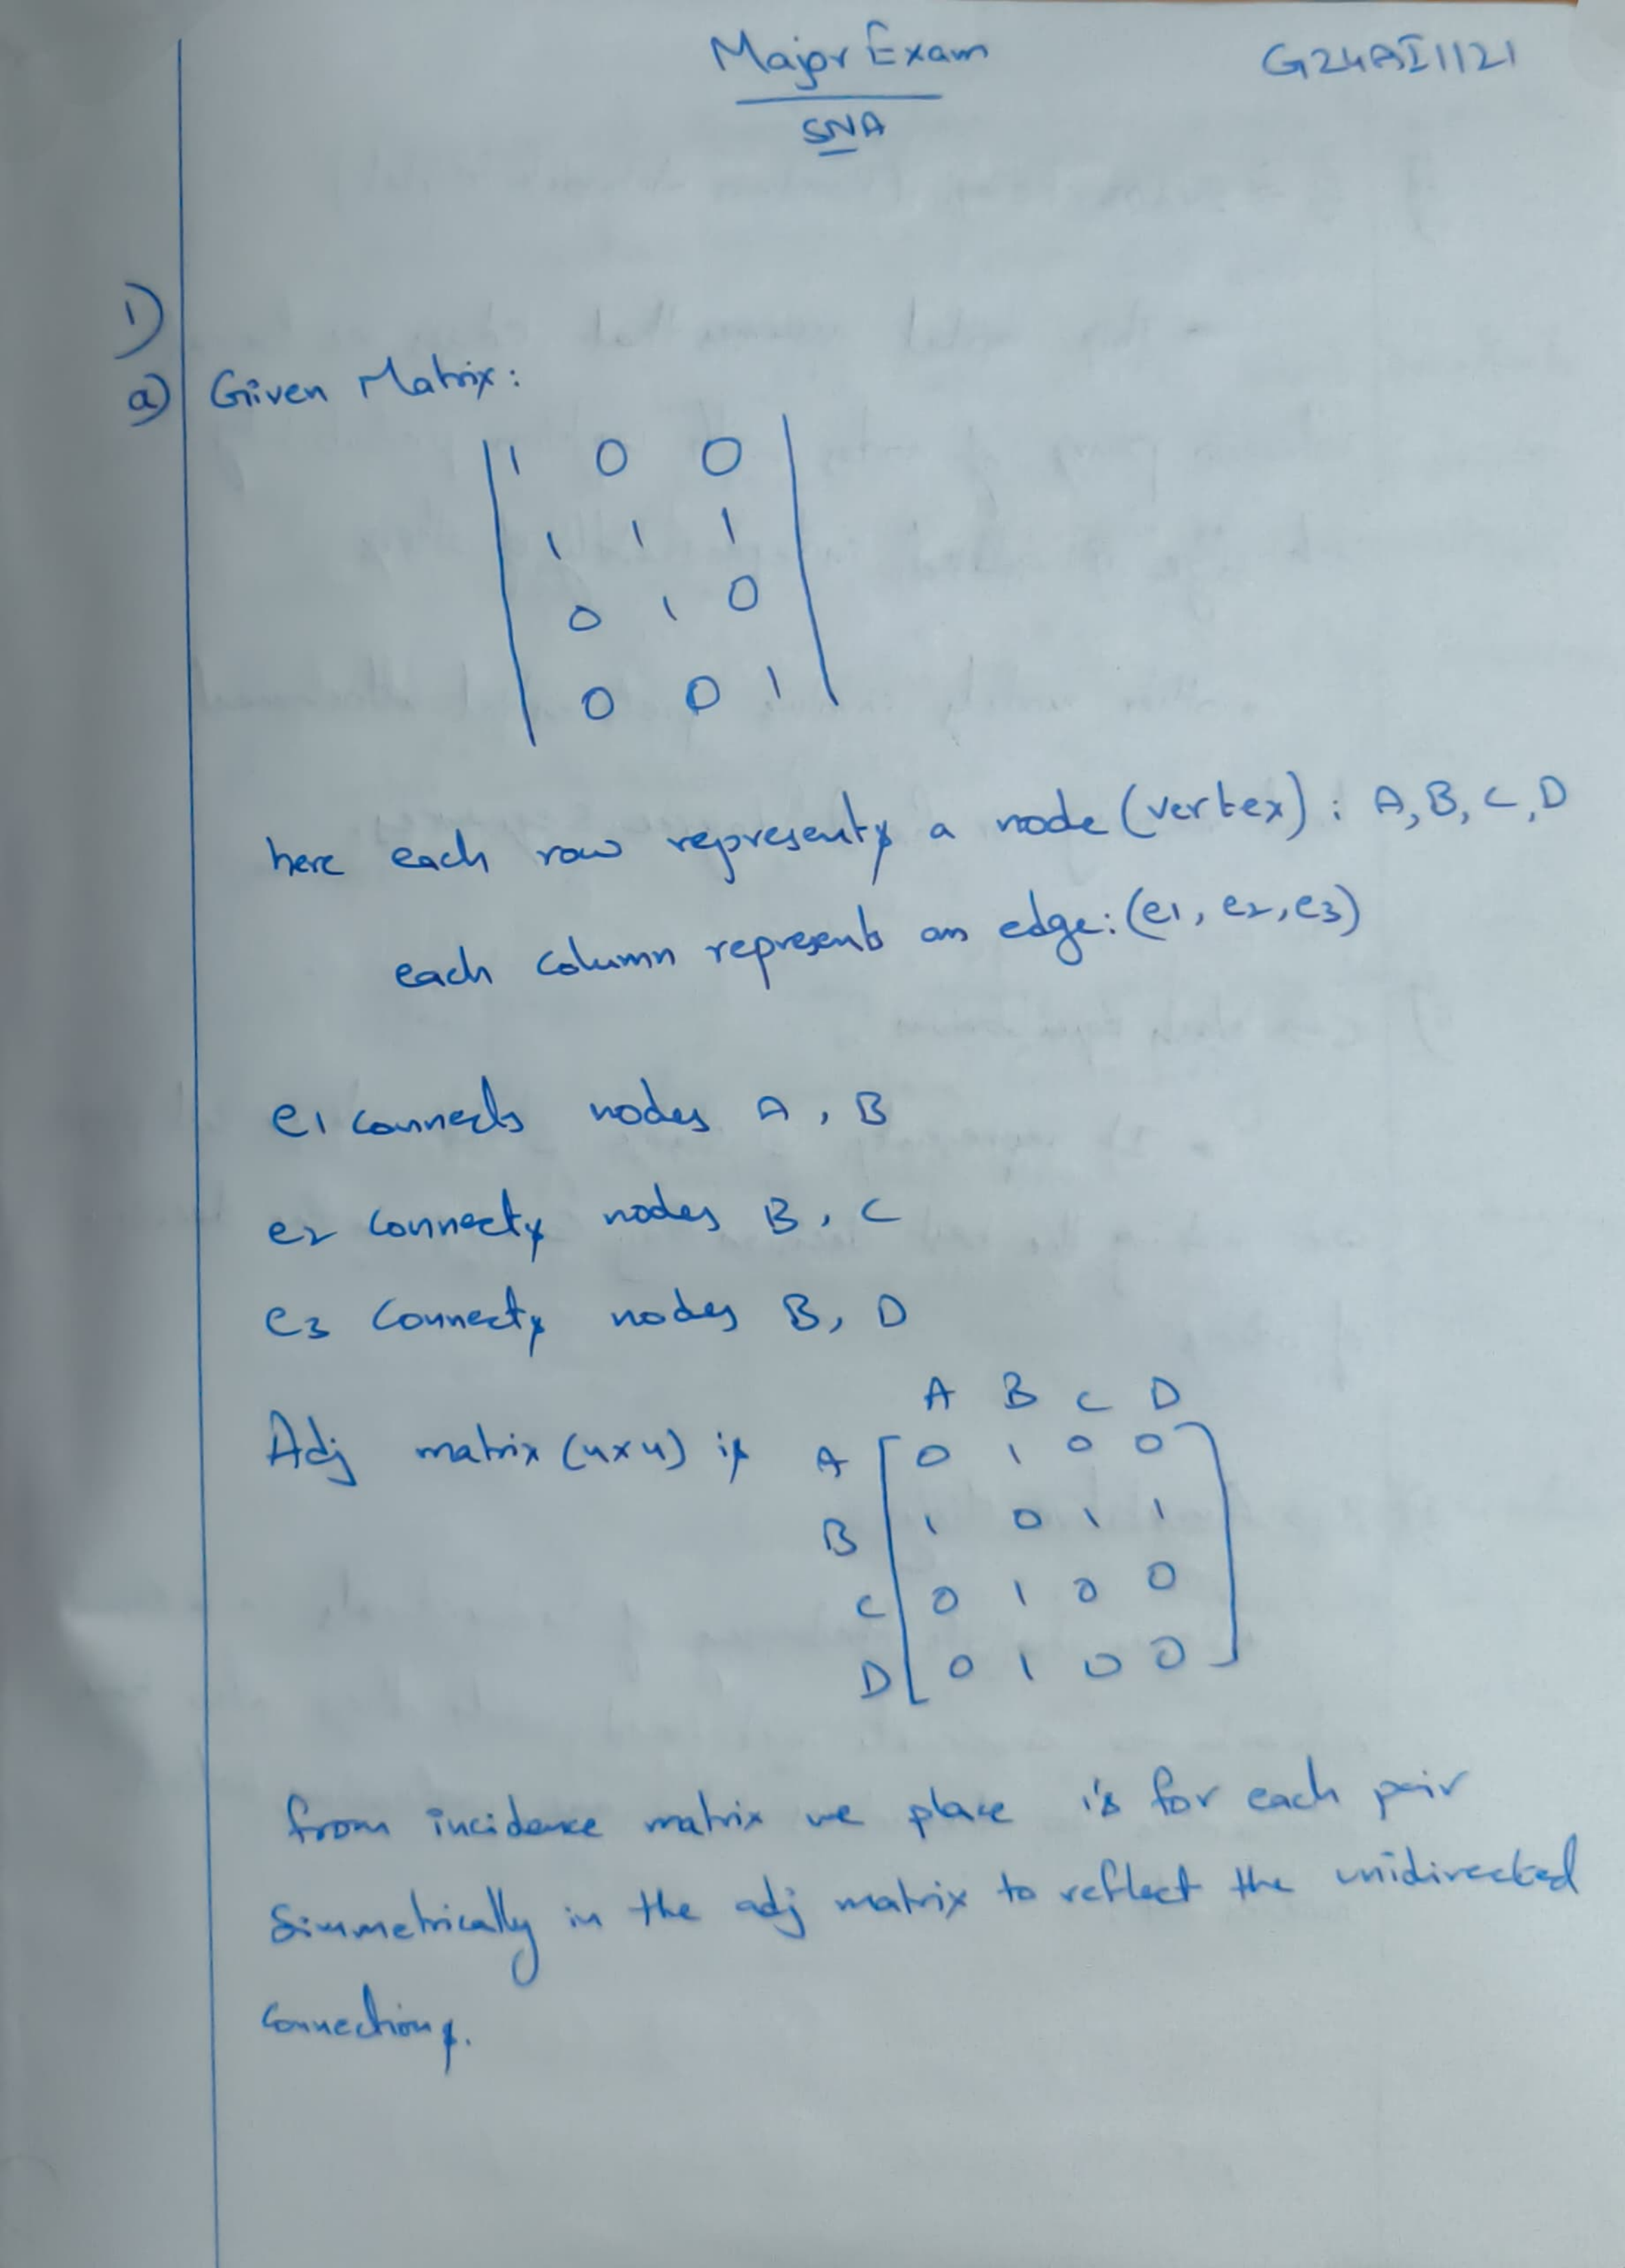 Major Exam G24AI1121
SNA
1)
a) Given Matrix:
1 0 0
1 1 1
0 1 0
0 0 1
here each row represents a node (vertex) : A, B, C, D
each column represents an edge: (e1, e2, e3)
e1 connects nodes A, B
e2 connects nodes B, C
e3 connects nodes B, D
A B C D
Adj matrix (4x4) is A 0 1 0 0
B 1 0 1 1
C 0 1 0 0
D 0 1 0 0
from incidence matrix we place 1's for each pair
Simmetrically in the adj matrix to reflect the unidirected
connections.